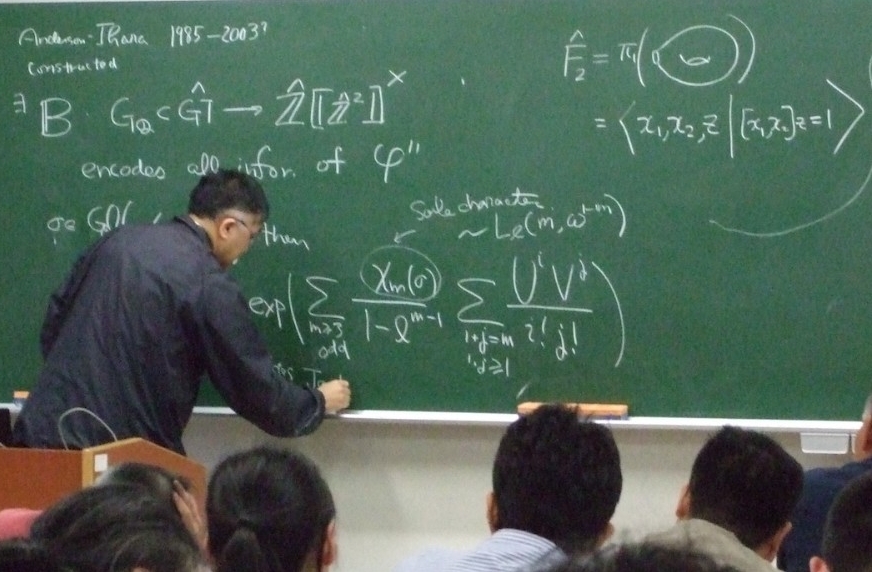 Anderson-Ihara 1985–2003?
Constructed
∃ 𝔹 : G_ℚ ⊂ ĜT → Ẑ[[Ẑ²]]^×
encodes all infor. of φ"
then
Soule character
~ L_ℓ(m, ω^{1-m})
exp( Σ_{m≥3 odd} χ_m(σ) / (1-ℓ^{m-1}) Σ_{i+j=m i,j≥1} U^i V^j / i! j! )
F̂_2 = π_1( )
= ⟨x_1, x_2, z | [x_1, x_2]z=1⟩